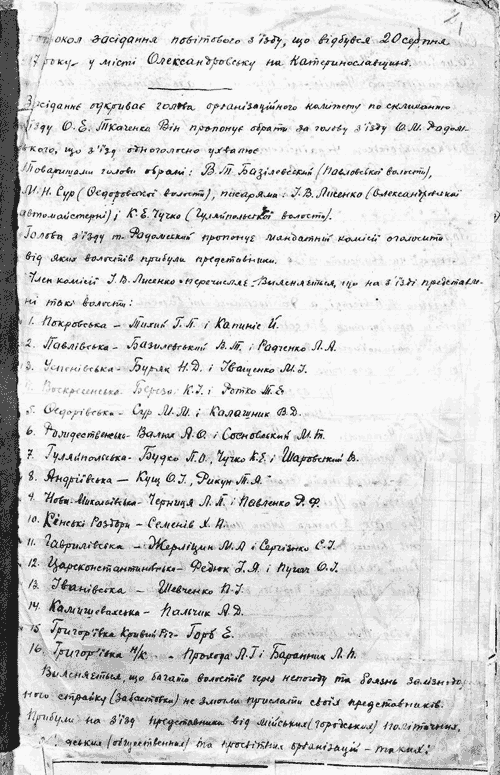 засідання повітового з'їзду, що відбувся 20 серпня
року у місті Олександровську на Катеринославщині.
Засідання одкриває голова організаційного комітету по скликанню
з'їзду О.Е. Ткаченко Він пропонує обрати за голову з'їзду
що з'їзд одноголосно ухвалює.
Товаришами голови обрані: В.Т. Базілевський (Павловської волости),
М.Н. Сур (Федоровської волости), писарями: І.В. Лисенко (Олександровської
автомайстерні) і К.Е. Чучко (Гуляйпольської волость).
Голова з'їзду т. Радомський пропонує мандатній комісії оголосити
від яких волостів прибули представники.
Член комісії І.В. Лисенко перечисляє. Виясняється, що на з'їзді представле-
ні такі волости:
1. Покровська - Тихий Г.П. і Капиніс Й.
2. Павлівська - Базилевський В.Т. і Радченко Л.А.
3. Успенівська - Буряк Н.Д. і Іващенко М.І.
4. Воскресенська Береза К.І. і
5. Федорівська - Сур М.М. і Калашник В.Д.
6. Валюх А.О. і М.Т.
7. Гуляйпільська - Будко П.О., Чучко К.Е і Шаровський В.
8. Андріївська - Кущ О.І., Рикун Т.Я.
9. Ново-Миколаївська - Черниця Л.П. і Павленко Ф.
10. Кінські Роздори - Семенів Х.
11. Гаврилівська - Жерліцин М.А і Сергієнко Є.І.
12. Царсконстантинівська - Федюк І.Я. і Пугач О.І.
13. Іванівська - Шевченко П.І.
14. Камишеваська - Пальчик А.Д.
15 Григор'ївка Кривий Ріг - Горв Е.
16. Григор'ївка М/К - Прохода Л.Г і Баранник Л.П.
Виясняється, що багато волостів через непогоду та боязнь залізнодорож-
ного страйку (забастовки) не змогли прислати своїх представників.
Прибули на з'їзд представники від мійських (городських) політичних,
(общественних) та просвітних організацій - таких: